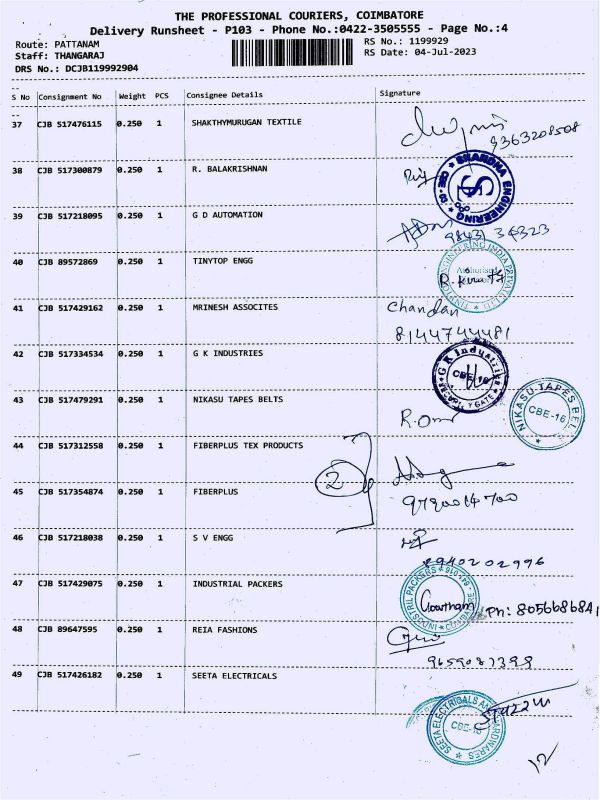 THE PROFESSIONAL COURIERS, COIMBATORE
Delivery Runsheet - P103 - Phone No.:0422-3505555 - Page No.:4
Route: PATTANAM RS No.: 1199929
Staff: THANGARAJ RS Date: 04-Jul-2023
DRS No.: DCJB119992904
S No Consignment No Weight PCS Consignee Details Signature
37 CJB 517476115 0.250 1 SHAKTHYMURUGAN TEXTILE
9363208508
38 CJB 517300879 0.250 1 R. BALAKRISHNAN
SHARDHA ENGINEERING
39 CJB 517218095 0.250 1 G D AUTOMATION
98431 34323
40 CJB 89572869 0.250 1 TINYTOP ENGG
41 CJB 517429162 0.250 1 MRINESH ASSOCITES Chandan
8144744481
42 CJB 517334534 0.250 1 G K INDUSTRIES
G K Industries CBE-16
43 CJB 517479291 0.250 1 NIKASU TAPES BELTS
NIKASU TAPES BELTS CBE-16
44 CJB 517312558 0.250 1 FIBERPLUS TEX PRODUCTS
2
45 CJB 517354874 0.250 1 FIBERPLUS
46 CJB 517218038 0.250 1 S V ENGG
8940202996
47 CJB 517429075 0.250 1 INDUSTRIAL PACKERS
Gowtham Ph: 8056686841
48 CJB 89647595 0.250 1 REIA FASHIONS
9659087398
49 CJB 517426182 0.250 1 SEETA ELECTRICALS
SEETA ELECTRICALS AND HARDWARES CBE-16
12